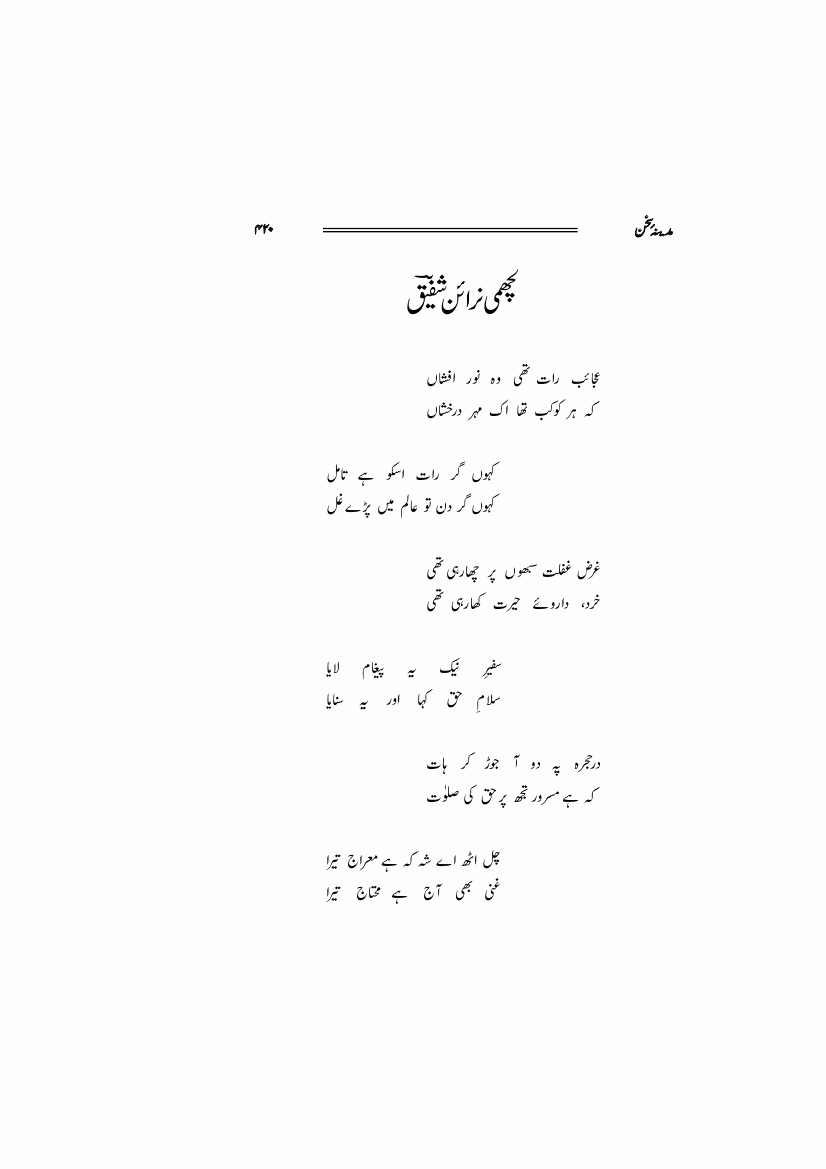 مدینۂ سخن ۴۲۰
لچھمی نرائن شفیقؔ
عجائب رات تھی وہ نور افشاں
کہ ہر کوکب تھا اک مہر درخشاں
کہوں گر رات اسکو ہے تامل
کہوں گر دن تو عالم میں پڑے غل
غرض غفلت سبھوں پر چھارہی تھی
خرد، داروئے حیرت کھارہی تھی
سفیرِ نیک یہ پیغام لایا
سلامِ حق کہا اور یہ سنایا
درحجرہ پہ دو آ جوڑ کر ہات
کہ ہے مسرور تجھ پر حق کی صلوٰت
چل اٹھ اے شہ کہ ہے معراج تیرا
غنی بھی آج ہے محتاج تیرا